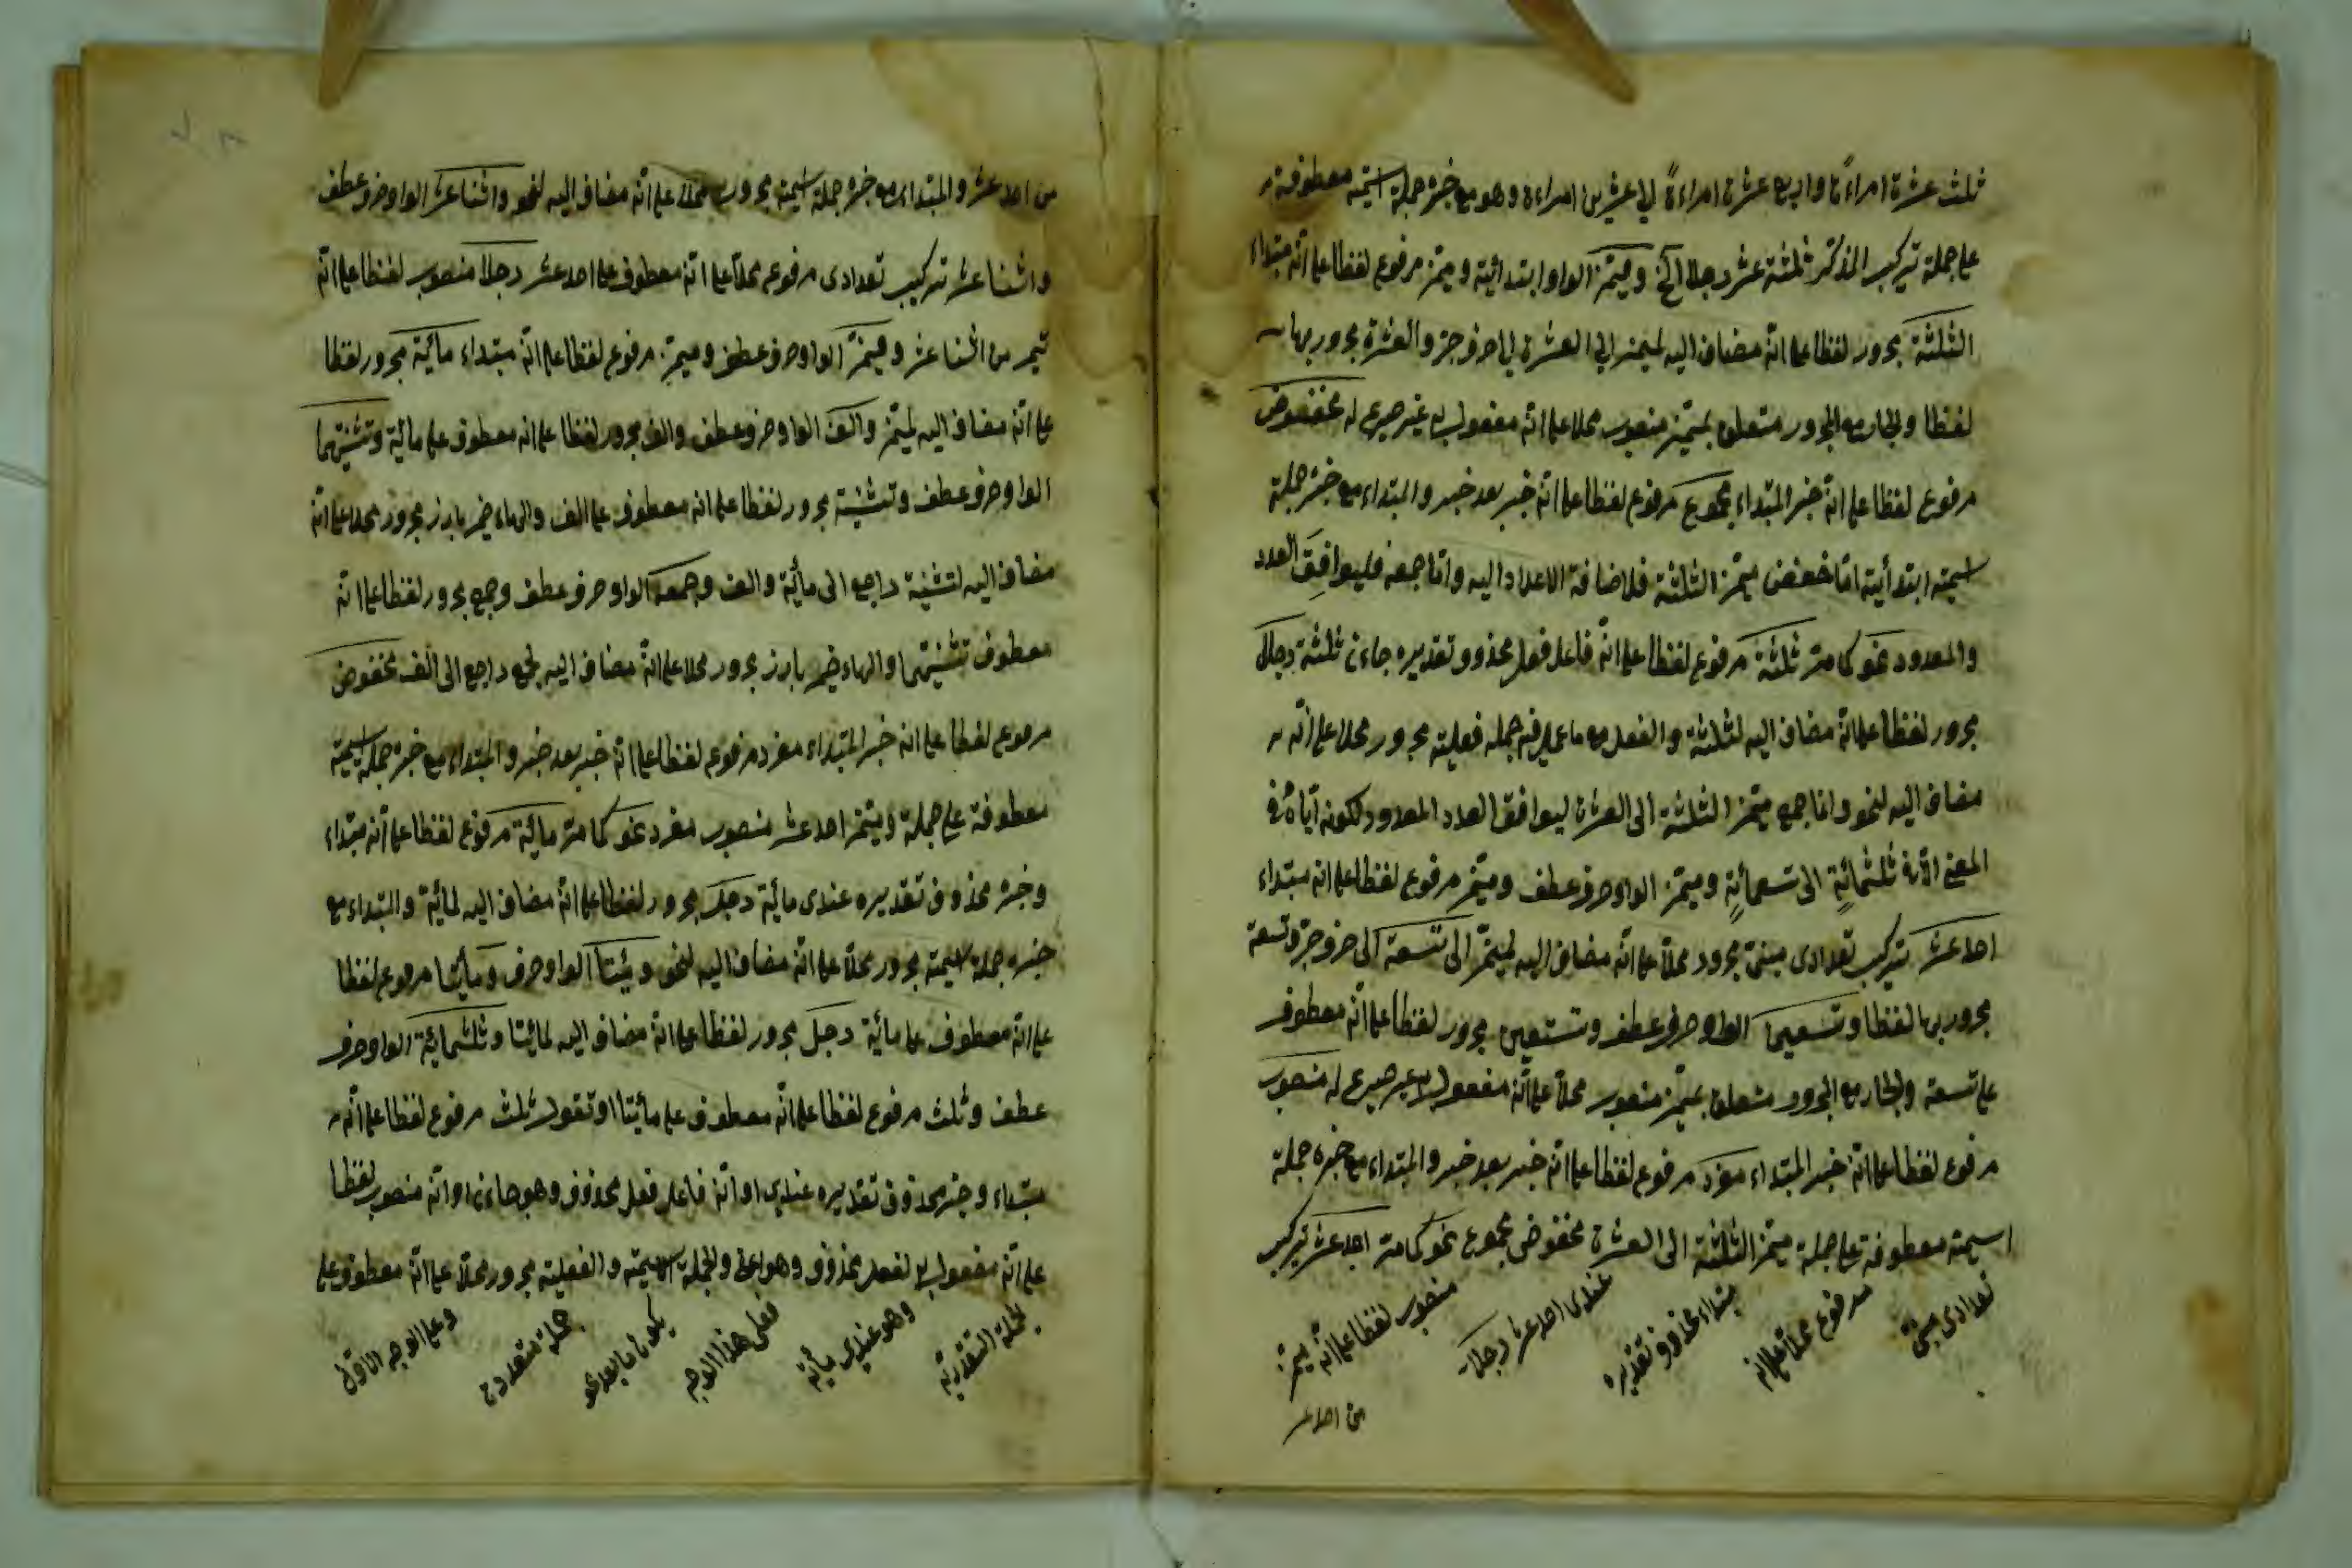 ثلث عشرة امراءة واربع عشرة امراءة الى عشرين امراءة وهو مع خبره جملة اسمية معطوفة
على جملة تركيب المذكر ثلثة عشر رجلا الخ ومميّز الواو ابتدائية ومميز مرفوع لفظا على انّه مبتداء
الثلثة مجرور لفظا على انّه مضاف اليه لمميز الى العشرة الى حرف جر والعشرة مجرور بها
لفظا والجار مع المجرور متعلق بمميّز منصوب محلا على انّه مفعول به غير صريح له مخفوض
مرفوع لفظا على انّه خبر المبتداء مجموع مرفوع لفظا على انّه خبر بعد خبر والمبتداء مع خبره جملة
اسمية ابتدائية امّا خفض مميّز الثلثة فلاضافة الاعداد اليه وامّا جمعه فليوافق العدد
والمعدود نحو كامتر ثلثة مرفوع لفظا على انّه فاعل فعل محذوف تقديره جاءنى ثلثة رجال
مجرور لفظا على انّه مضاف اليه لثلثة والفعل مع ما عمل فيه جملة فعلية مجرور محلا على انّه
مضاف اليه لنحو وامّا جمع مميّز الثلثة الى العشرة ليوافق العدد المعدود لكونه ايّاه فى
المعنى الّا فى ثلثمائةٍ الى تسعمائةٍ ومميّز الواو حرف عطف ومميّز مرفوع لفظا على انه مبتداء
احد عشر تركيب تعدادى مبنىّ مجرور محلّا على انّه مضاف اليه لمميّز الى تسعة الى حرف جر وتسعة
مجرور بها لفظا وتسعين الواو حرف عطف وتسعين مجرور لفظا على انّه معطوف
على تسعة والجار مع المجرور متعلق بمميّز منصوب محلّا على انّه مفعول به غير صريح له منصوب
مرفوع لفظا على انّه خبر المبتداء مفرد مرفوع لفظا على انّه خبر بعد خبر والمبتداء مع خبره جملة
اسمية معطوفة على جملة مميّز الثلثة الى العشرة مخفوض مجموع نحو كامتر احد عشر تركيب
تعدادى مبنىّ
مرفوع محلّا على انه
مبتداء محذوف تقديره
عندى احد عشر رجلا
منصوب لفظا على انّه مميّز
من احد عشر
من احد عشر والمبتداء مع خبره جملة اسمية مجرور محلّا على انّه مضاف اليه لنحو واثنا عشر الواو حرف عطف
واثنا عشر تركيب تعدادى مرفوع محلّا على انّه معطوف على احد عشر رجلا منصوب لفظا على انّه
مميز من اثنا عشر ومميّز الواو حرف عطف ومميّز مرفوع لفظا على انّه مبتداء مائية مجرور لفظا
على انّه مضاف اليه لمميّز والف الواو حرف عطف والف مجرور لفظا على انه معطوف على مائية وتثنيتهما
الواو حرف عطف وتثنية مجرور لفظا على انه معطوف على الف والهاء ضمير بارز مجرور محلا على انّه
مضاف اليه لتثنية راجع الى مائية والف وجمعه الواو حرف عطف وجمع مجرور لفظا على انّه
معطوف تثنيتهما والهاء ضمير بارز مجرور محلا على انّه مضاف اليه لجمع راجع الى الف مخفوض
مرفوع لفظا على انه خبر المبتداء مفرد مرفوع لفظا على انّه خبر بعد خبر والمبتداء مع خبره جملة اسمية
معطوفة على جملة ومميّز احد عشر منصوب مفرد نحو كامتر مائية مرفوع لفظا على انه مبتداء
وخبره محذوف تقديره عندى مائية رجل مجرور لفظا على انّه مضاف اليه لمائية والمبتداء مع
خبره جملة اسمية مجرور محلّا على انّه مضاف اليه لنحو ومئتا الواو حرف ومائتا مرفوع لفظا
على انّه معطوف على مائية رجل مجرور لفظا على انّه مضاف اليه لمائيتا وثلثمائية الواو حرف
عطف وثلث مرفوع لفظا على انّه معطوف على مأئيتا او تقول ثلث مرفوع لفظا على انّه
مبتداء وخبره محذوف تقديره عندى او انّه فاعل فعل محذوف وهو جاءنى او انّه منصوب لفظا
على انّه مفعول به لفعل محذوف وهو اعط والجملة الاسمية والفعلية مجرور محلّا على انّه معطوف على
الجملة التقديرية
وهو عندى مأية
فعلى هذا الوجه
يكون ما بعد نحو
جملة متعددة
وعلى الوجه الاوّل